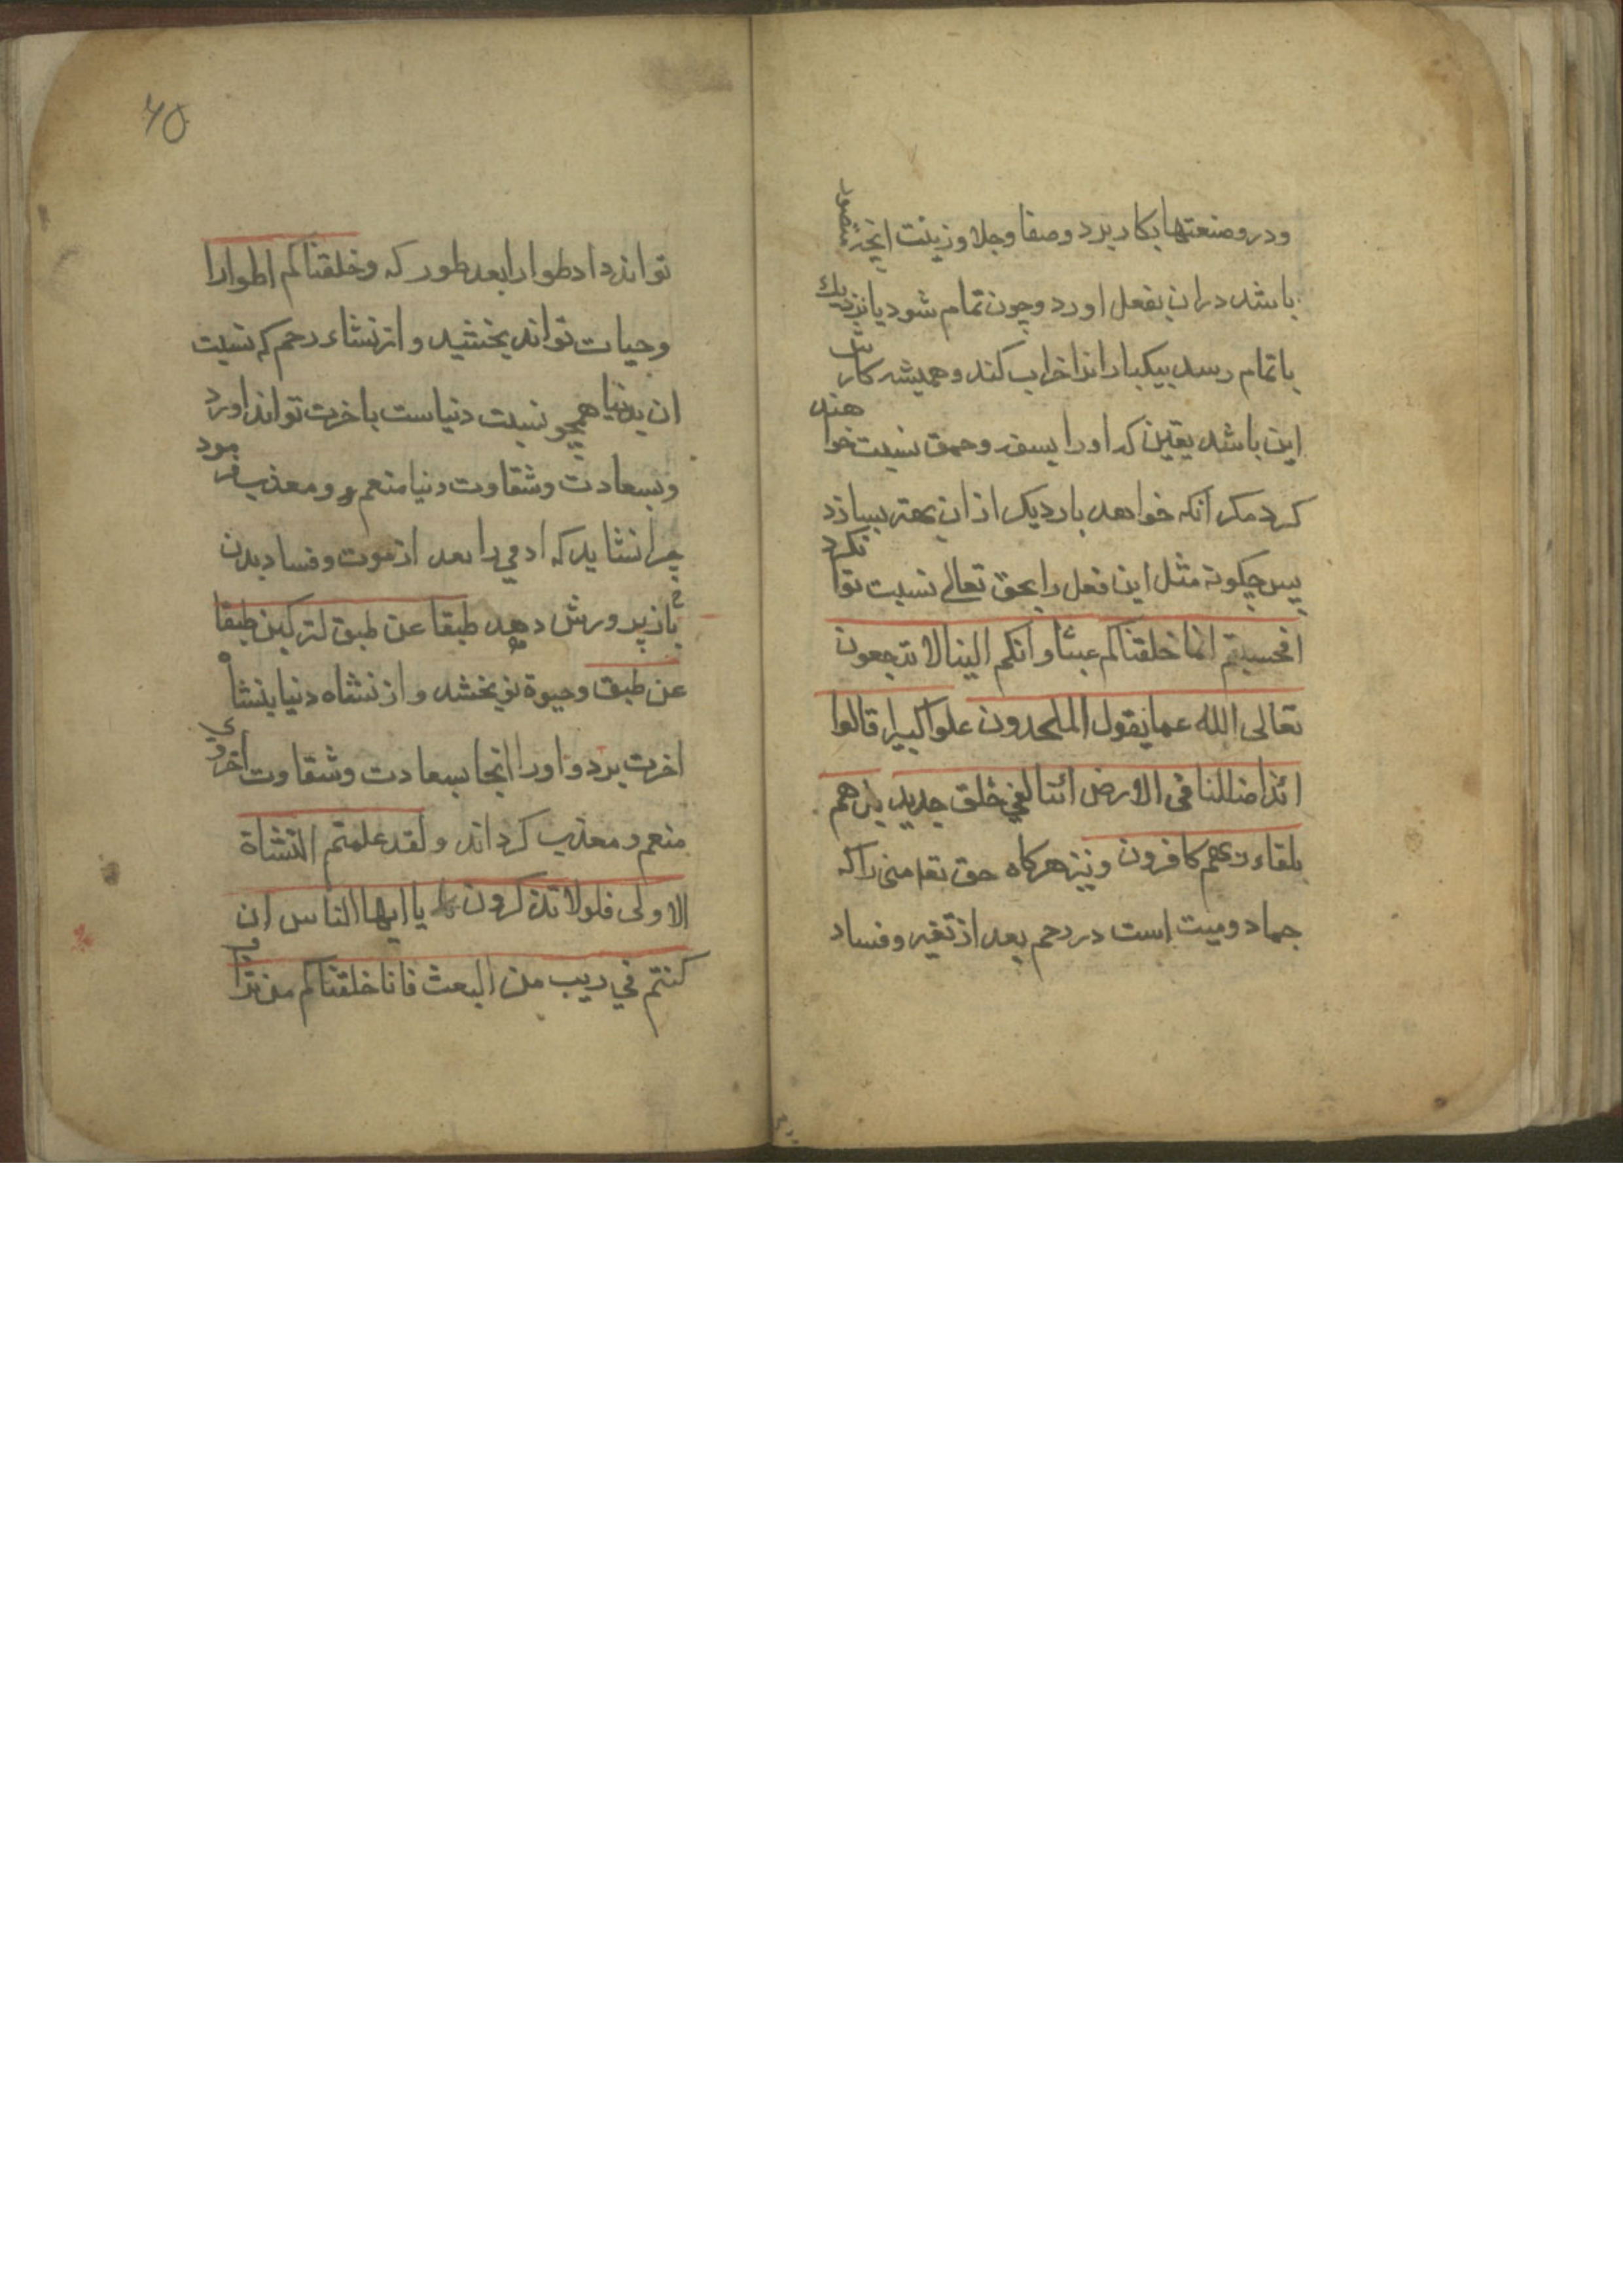 ودرو صنعتها بکار برد و صفا و جلا و زینت انچه متصور
باشد دران بفعل اورد و چون تمام شود یا نزدیک
باتمام رسد بیکبار انرا خراب کند و همیشه کارش
این باشد یقین که اورا بسفه و حمق نسبت خواهند
کرد مکر آنکه خواهد بار دیکر از ان بهتر بسازد
پس چکونه مثل این فعل را بحق تعالی نسبت توا نکرد
افحسبتم انما خلقناکم عبثا و انکم الینا لا ترجعون
تعالی الله عما یقول الملحدون علوا کبیرا قالوا
ائذا ضللنا فی الارض ائنا لفی خلق جدید بل هم
بلقاء ربهم کافرون و نیز هرکاه حق تعا منی را که
جماد و میت است در رحم بعد از تغیر و فساد
۶۵
تواند داد طوارا بعد طور که و خلقناکم اطوارا
و حیات تواند بخشید و از نشاء رحم که نسبت
ان بدنیا همچو نسبت دنیاست باخرت تواند اورد
و بسعادت و شقاوت دنیا منعم و معذب فرمود
چرا نشاید که ادمی را بعد از موت و فساد بدن
باز پرورش دهد طبقا عن طبق لترکبن طبقا
عن طبق و حیوة نو بخشد و از نشاه دنیا بنشاه
اخرت برد و اورا انجا بسعادت و شقاوت اخروی
منعم و معذب کرداند و لقد علمتم النشاة
الاولی فلولا تذکرون یا ایها الناس ان
کنتم فی ریب من البعث فانا خلقناکم من تراب